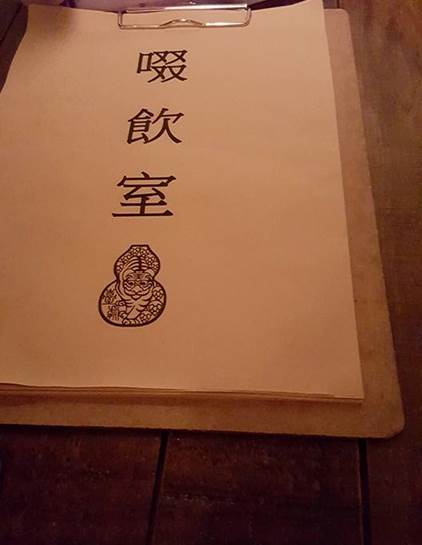 啜飲室